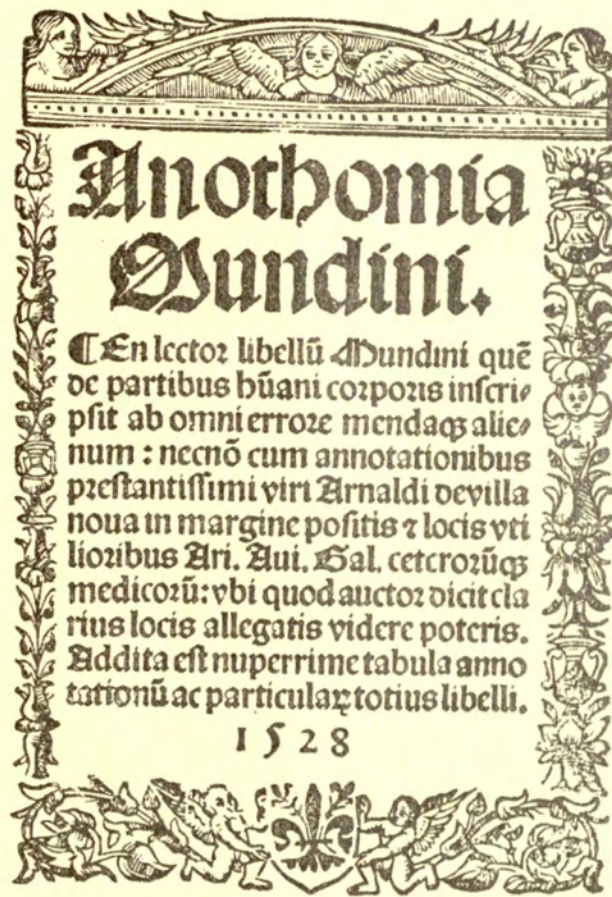 Anothomia
Mundini.
⁋En lector libellū Mundini quē
de partibus hūani corporis inscri⸗
psit ab omni errore mendaqꝫ alie⸗
num : necnō cum annotationibus
prestantissimi viri Arnaldi devilla
noua in margine positis ⁊ locis vti
lioribus Ari. Aui. Gal. ceterorūqꝫ
medicorū: vbi quod auctor dicit cla
rius locis allegatis videre poteris.
Addita est nuperrime tabula anno
tationū ac particularꝝ totius libelli.
1528